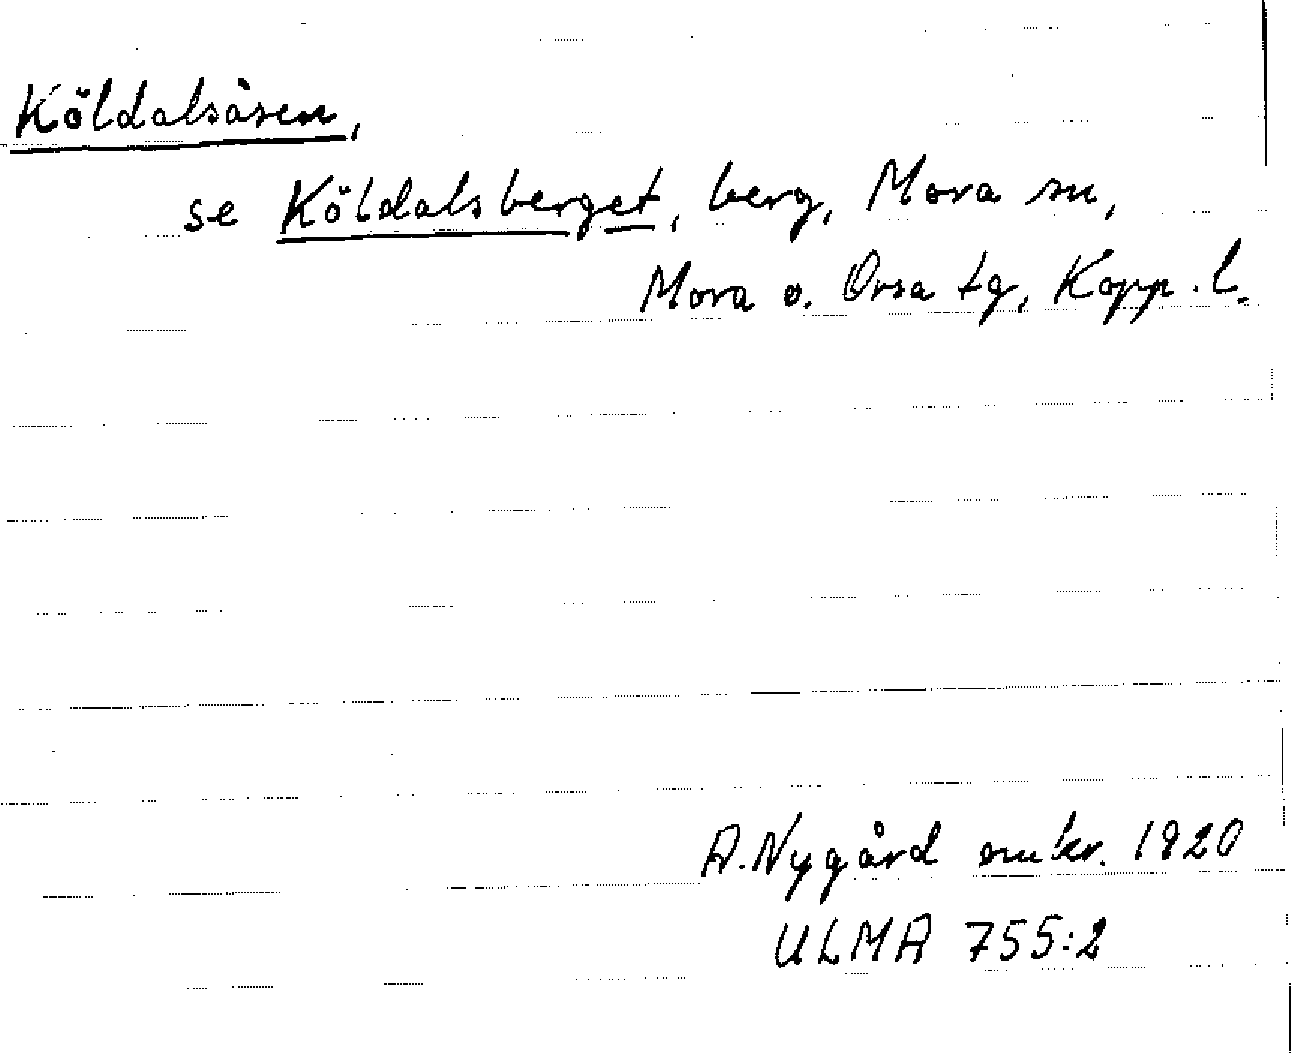 Köldalsåsen,
se Köldalsberget, berg, Mora sn,
Mora o. Orsa tg, Kopp. l.
A. Nygård omkr. 1920
ULMA 755:2